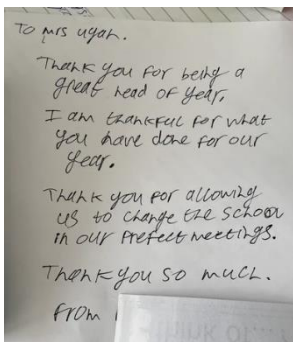 To mrs ugah.
Thank you for being a
great head of year.
I am thankful for what
you have done for our
year.
Thank you for allowing
us to change the school
in our Prefect meetings.
Thank you so much.
from
think of...